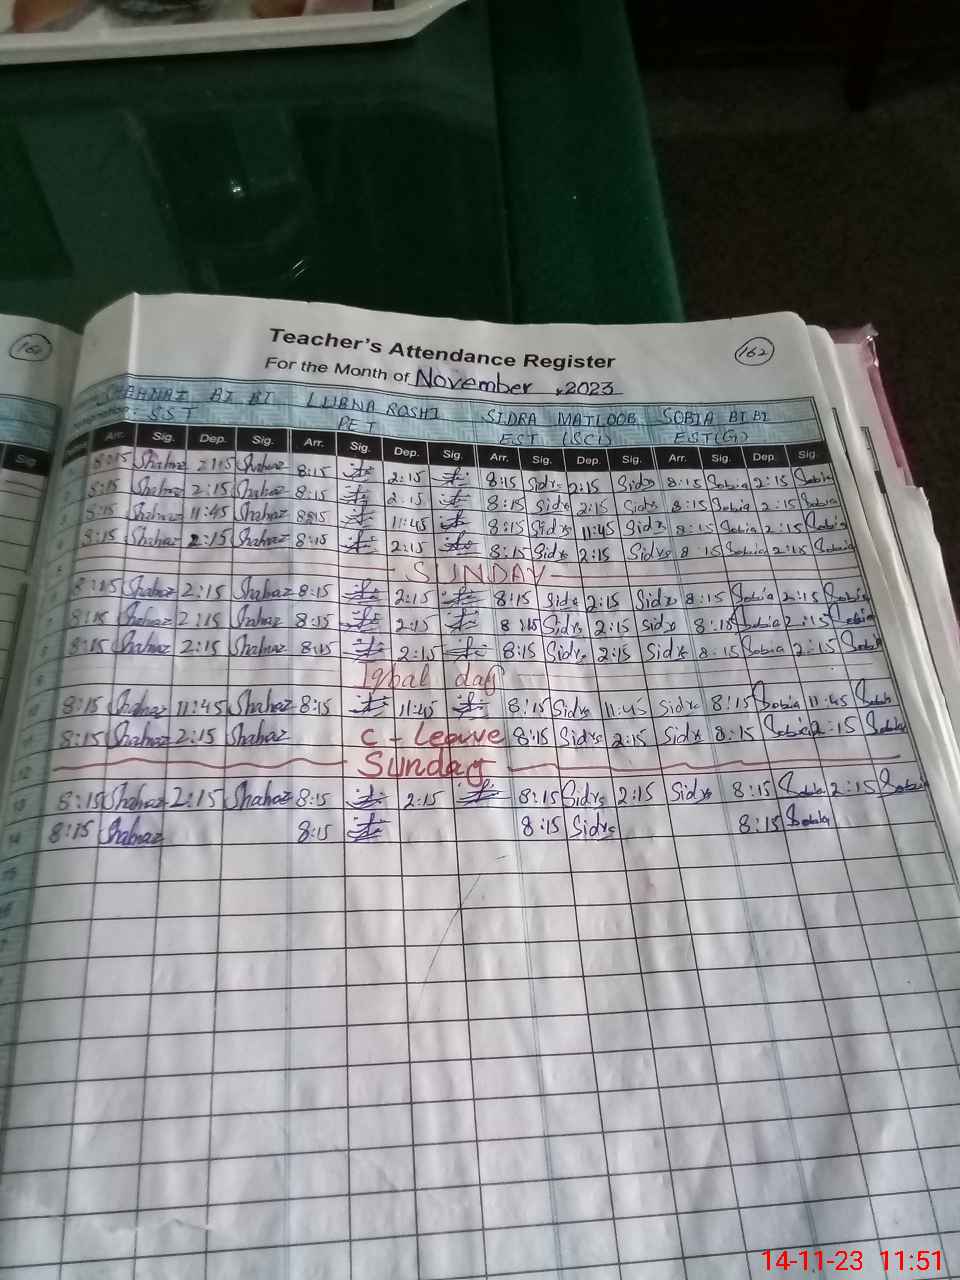 162
162
Teacher's Attendance Register
For the Month of November, 2023
SHAHNAZ BI BI LUBNA ROSHI SIDRA MATLOOB SOBIA BI BI
SST PET EST (SCI) EST(G)
Sig Arr. Sig. Dep. Sig. Arr. Sig. Dep. Sig. Arr. Sig. Dep. Sig. Arr. Sig. Dep. Sig.
8:15 Shahnaz 2:15 Shahnaz 8:15 2:15 8:15 Sidra 2:15 Sidra 8:15 Sobia 2:15 Sobia
2 8:15 Shahnaz 2:15 Shahnaz 8:15 2:15 8:15 Sidra 2:15 Sidra 8:15 Sobia 2:15 Sobia
8:15 Shahnaz 11:45 Shahnaz 8:15 11:45 8:15 Sidra 11:45 Sidra 8:15 Sobia 2:15 Sobia
4 8:15 Shahnaz 2:15 Shahnaz 8:15 2:15 8:15 Sidra 2:15 Sidra 8:15 Sobia 2:15 Sobia
5 SUNDAY
8:15 Shahnaz 2:15 Shahnaz 8:15 2:15 8:15 Sidra 2:15 Sidra 8:15 Sobia 2:15 Sobia
7 8:15 Shahnaz 2:15 Shahnaz 8:15 2:15 8:15 Sidra 2:15 Sidra 8:15 Sobia 2:15 Sobia
8 8:15 Shahnaz 2:15 Shahnaz 8:15 2:15 8:15 Sidra 2:15 Sidra 8:15 Sobia 2:15 Sobia
9 Iqbal day
10 8:15 Shahnaz 11:45 Shahnaz 8:15 11:45 8:15 Sidra 11:45 Sidra 8:15 Sobia 11:45 Sobia
11 8:15 Shahnaz 2:15 Shahnaz C-Leave 8:15 Sidra 2:15 Sidra 8:15 Sobia 2:15 Sobia
12 Sunday
13 8:15 Shahnaz 2:15 Shahnaz 8:15 2:15 8:15 Sidra 2:15 Sidra 8:15 Sobia 2:15 Sobia
14 8:15 Shahnaz 8:15 8:15 Sidra 8:15 Sobia
15
14-11-23 11:51